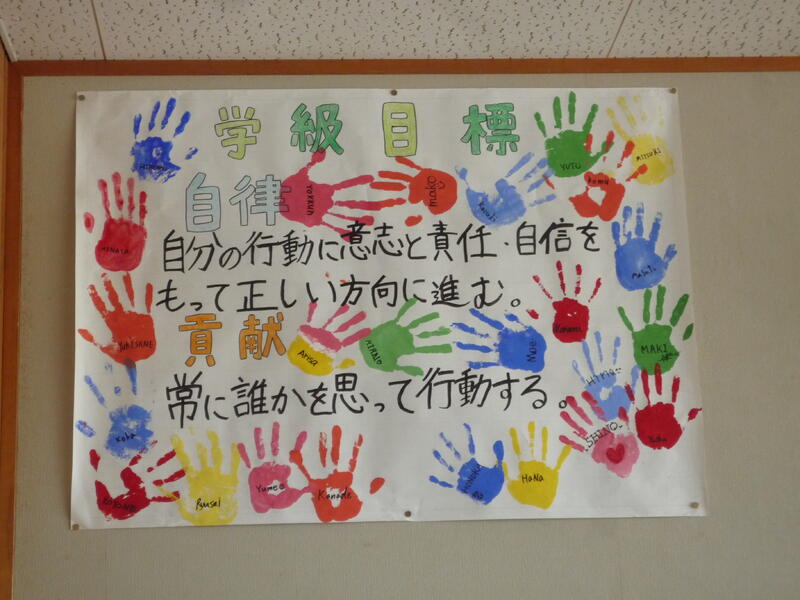 学級目標
自律
自分の行動に意志と責任・自信を
もって正しい方向に進む。
貢献
常に誰かを思って行動する。
YUTU
MITSUKI
YOKKUN
mako
HINATA
YUKISANE
Arisa
Moe
MAKI
Koha
SHINO
Ryusei
Yumee
Kanade
HaNa